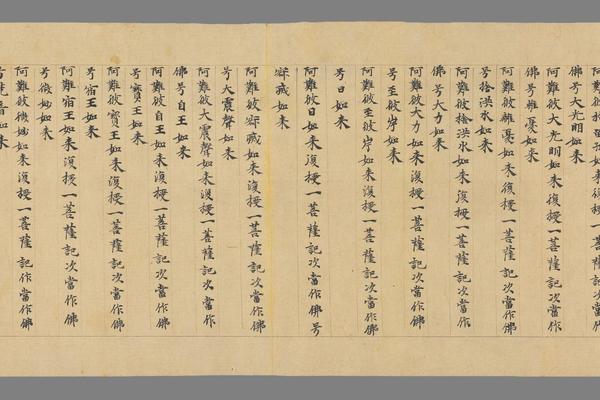 如来復授一菩薩記次當作
佛号大光明如来
阿難彼大光明如来復授一菩薩記次當作
佛号離憂如来
阿難彼離憂如来復授一菩薩記次當作佛
号捨洪水如来
阿難彼捨洪水如来復授一菩薩記次當作
佛号大力如来
阿難彼大力如来復授一菩薩記次當作佛
号至彼岸如来
阿難彼至彼岸如来復授一菩薩記次當作佛
号日如来
阿難彼日如来復授一菩薩記次當作佛号
寂滅如来
阿難彼寂滅如来復授一菩薩記次當作佛
号大震聲如来
阿難彼大震聲如来復授一菩薩記次當作
佛号自王如来
阿難彼自王如来復授一菩薩記次當作佛
号寶王如来
阿難彼寶王如来復授一菩薩記次當作佛
号宿王如来
阿難宿王如来復授一菩薩記次當作佛
号微妙如来
阿難彼微妙如来復授一菩薩記次當作佛
音如来